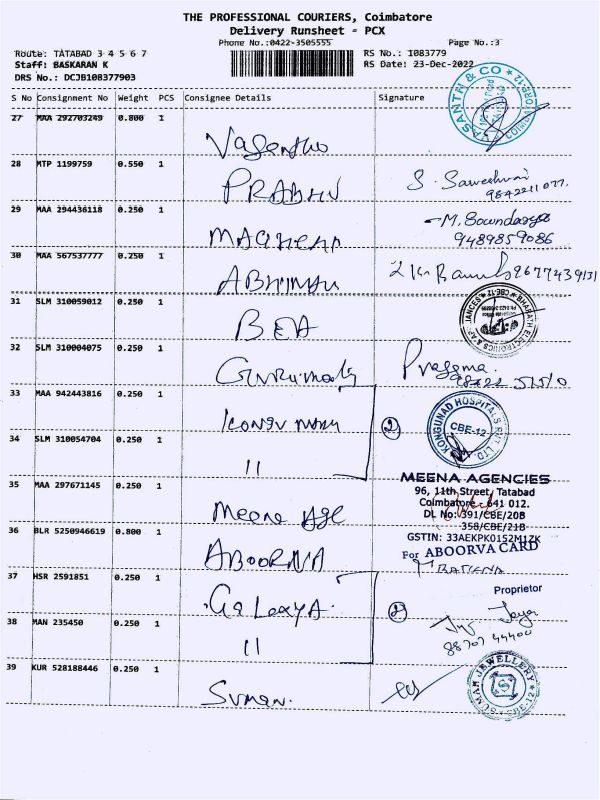 THE PROFESSIONAL COURIERS, Coimbatore
Delivery Runsheet - PCX
Phone No.:0422-3505555 Page No.:3
Route: TATABAD 3 4 5 6 7 RS No.: 1083779
Staff: BASKARAN K RS Date: 23-Dec-2022
DRS No.: DCJB108377903
S No Consignment No Weight PCS Consignee Details Signature
27 MAA 292703249 0.800 1
Vasantha
28 MTP 1199759 0.550 1
PRABHU
9842211077.
29 MAA 294436118 0.250 1
M. Soundarya
9489859086
30 MAA 567537777 0.250 1
9677439131
31 SLM 310059012 0.250 1
BEA
BHARATH ELECTRONICS & APPLIANCES
CBE-12
32 SLM 310004075 0.250 1
33 MAA 942443816 0.250 1
2
KONGUNAD HOSPITALS PVT. LTD.
CBE-12
34 SLM 310054704 0.250 1
11
35 MAA 297671145 0.250 1
Meena Age
MEENA AGENCIES
96, 11th Street, Tatabad
Coimbatore - 641 012.
DL No: 391/CBE/20B
358/CBE/21B
GSTIN: 33AEKPK0152M1ZK
36 BLR 5250946619 0.800 1
ABOORVA
For ABOORVA CARD
Proprietor
37 HSR 2591851 0.250 1
Galaxya
2
38 MAN 235450 0.250 1
11
88707 44400
39 KUR 528188446 0.250 1
Suman.
SUMAN JEWELLERY
CBE-12